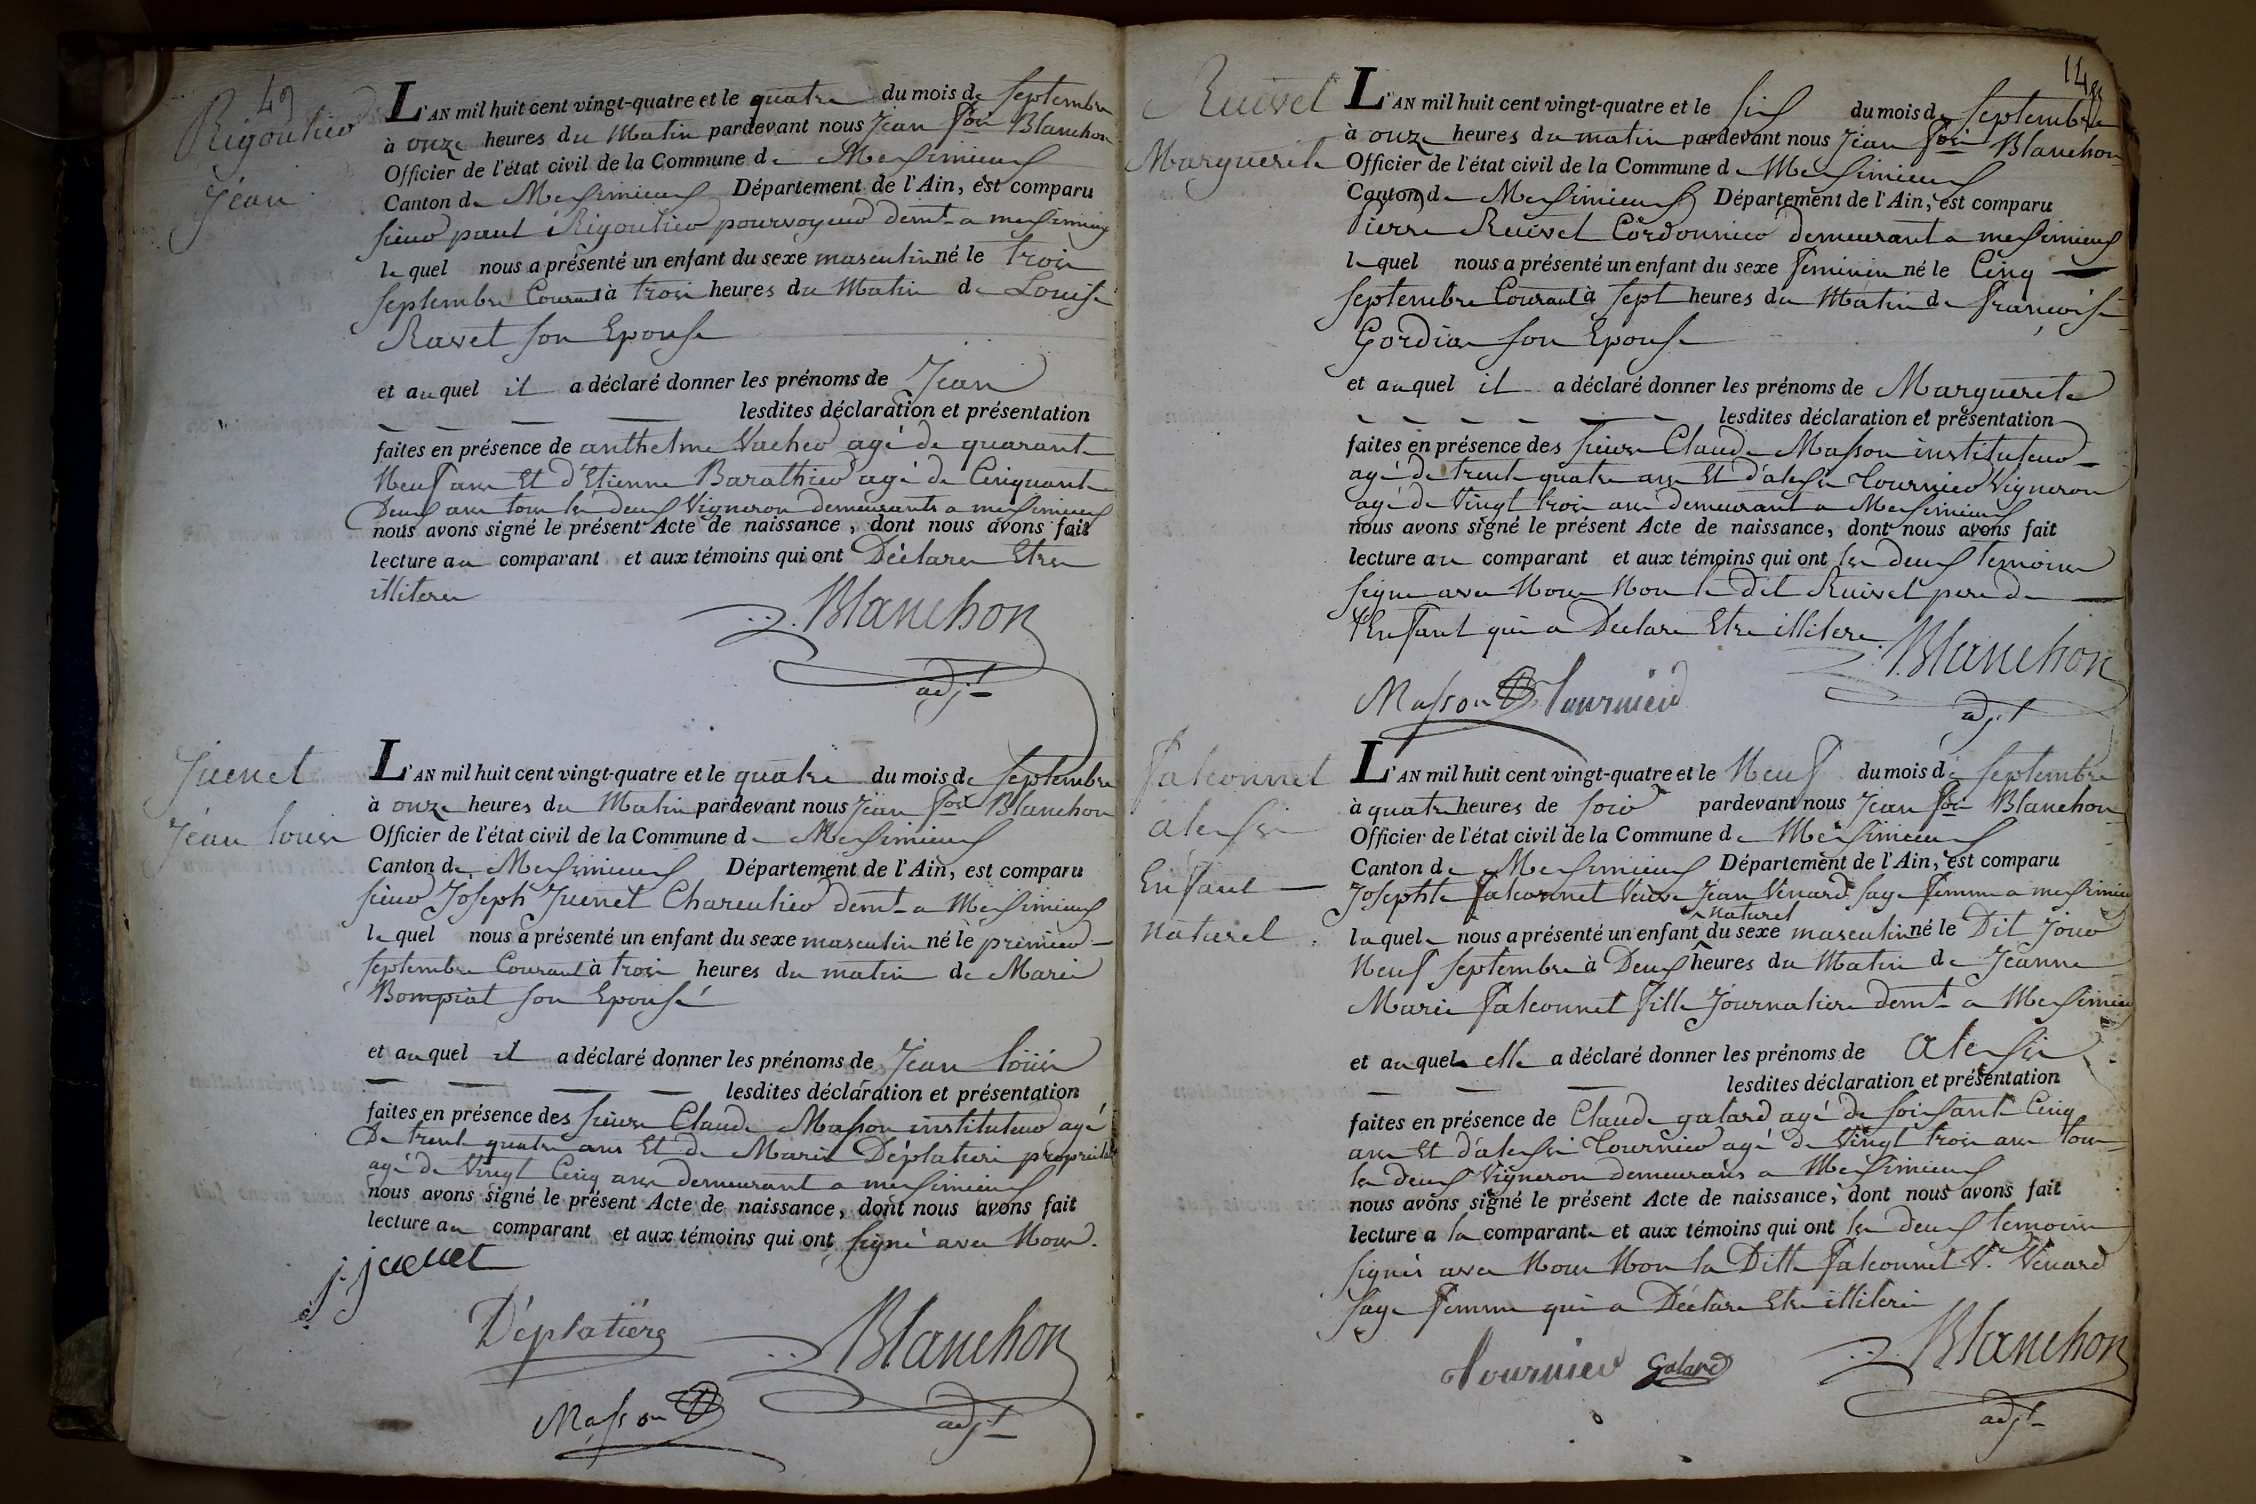 49
Rigoutier
Jean
L'AN mil huit cent vingt-quatre et le quatre du mois de septembre
à onze heures du matin pardevant nous Jean fois Blanchon
Officier de l'état civil de la Commune de Meximieux
Canton de Meximieux Département de l'Ain, est comparu
sieur paul Rigoutier pourvoyeur demt a meximieux
lequel nous a présenté un enfant du sexe masculin né le trois
septembre Courant à trois heures du Matin de Louise
Ravet son Epouse
et auquel il a déclaré donner les prénoms de Jean
lesdites déclaration et présentation
faites en présence de anthelme Vacher agé de quarante
Neuf ans Et d'Etienne Barathier agé de Cinquante
Deux ans tous les deux Vigneron demeurants a meximieux
nous avons signé le présent Acte de naissance, dont nous avons fait
lecture au comparant et aux témoins qui ont Déclarer Etre
illiteres
Blanchon
adjt
Juenet
Jean louis
L'AN mil huit cent vingt-quatre et le quatre du mois de septembre
à onze heures du Matin pardevant nous Jean fois Blanchon
Officier de l'état civil de la Commune de Meximieux
Canton de Meximieux Département de l'Ain, est comparu
sieur Joseph Juenet Charcutier demt a Meximieux
lequel nous a présenté un enfant du sexe masculin né le premier
septembre Courant à trois heures du matin de Marie
Bompiat son Epouse
et auquel il a déclaré donner les prénoms de Jean loüis
lesdites déclaration et présentation
faites en présence des sieurs Claude Masson instituteur agé
De trente quatre ans Et de Marie Déplatiere proprietaire
agé de Vingt Cinq ans demeurant a meximieux
nous avons signé le présent Acte de naissance, dont nous avons fait
lecture au comparant et aux témoins qui ont signé avec Nous.
j. juenet
Déplatiére
Blanchon
adjt
Masson
148
Ruivet
Marguerite
L'AN mil huit cent vingt-quatre et le six du mois de septembre
à onze heures du matin pardevant nous Jean fois Blanchon
Officier de l'état civil de la Commune de Meximieux
Canton de Meximieux Département de l'Ain, est comparu
Pierre Ruivet Cordonnier demeurant a meximieux
lequel nous a présenté un enfant du sexe feminin né le Cinq
septembre Courant à sept heures du Matin de francoise
Gordian son Epouse
et auquel il a déclaré donner les prénoms de Marguerite
lesdites déclaration et présentation
faites en présence des sieurs Claude Masson instituteur
agé de trente quatre ans Et d'alexis Tournier Vigneron
agé de Vingt trois ans demeurant a Meximieux
nous avons signé le présent Acte de naissance, dont nous avons fait
lecture au comparant et aux témoins qui ont les deux temoins
signe avec Nous Non le dit Ruivet pere de
l'Enfant qui a Declare Etre illitere
Blanchon
adjt
Masson Tournier
falconnet
alexis
Enfant
naturel
L'AN mil huit cent vingt-quatre et le Neuf du mois de septembre
à quatre heures de soir pardevant nous Jean fois Blanchon
Officier de l'état civil de la Commune de Meximieux
Canton de Meximieux Département de l'Ain, est comparu
Josephte falconnet Veuve Jean Vénard sage femme a meximieux
naturel
laquele nous a présenté un enfant du sexe masculin né le Dit Jour
Neuf septembre à Deux heures du Matin de Jeanne
Marie falconnet fille Journaliere demt a Meximieux
et auquel elle a déclaré donner les prénoms de alexis
lesdites déclaration et présentation
faites en présence de Claude galard agé de soixante Cinq
ans Et d'alexis Tournier agé de Vingt trois ans tous
les deux Vigneron demeurans a Meximieux
nous avons signé le présent Acte de naissance, dont nous avons fait
lecture a la comparante et aux témoins qui ont les deux temoins
signés avec Nous Non la Ditte falconnet Ve Vénard
sage femme qui a Déclare Etre illitere
Blanchon
adjt
Tournier Galard